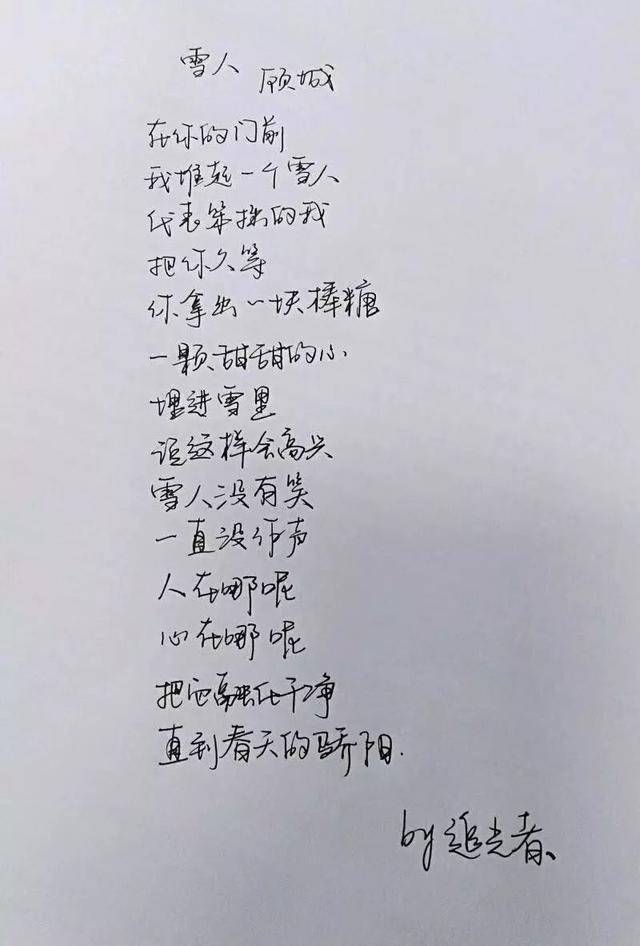 雪人 顾城
在你的门前
我堆起一个雪人
代表笨拙的我
把你久等
你拿出一块棒糖
一颗甜甜的心
埋进雪里
说这样会高兴
雪人没有笑
一直没作声
人在哪呢
心在哪呢
把它融化干净
直到春天的骄阳.
by 追光者、